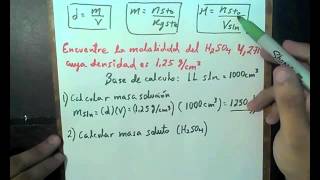 d = m/V   m = nsto/Kgste   M = nsto/Vsln
Encuentre la molalidad del H₂SO₄ 4,27
cuya densidad es 1,25 g/cm³
Base de calculo: 1L sln = 1000 cm³
1) Calcular masa solución
msln = (d)(V) = (1,25 g/cm³)(1000 cm³) = 1250
2) Calcular masa soluto (H₂SO₄)